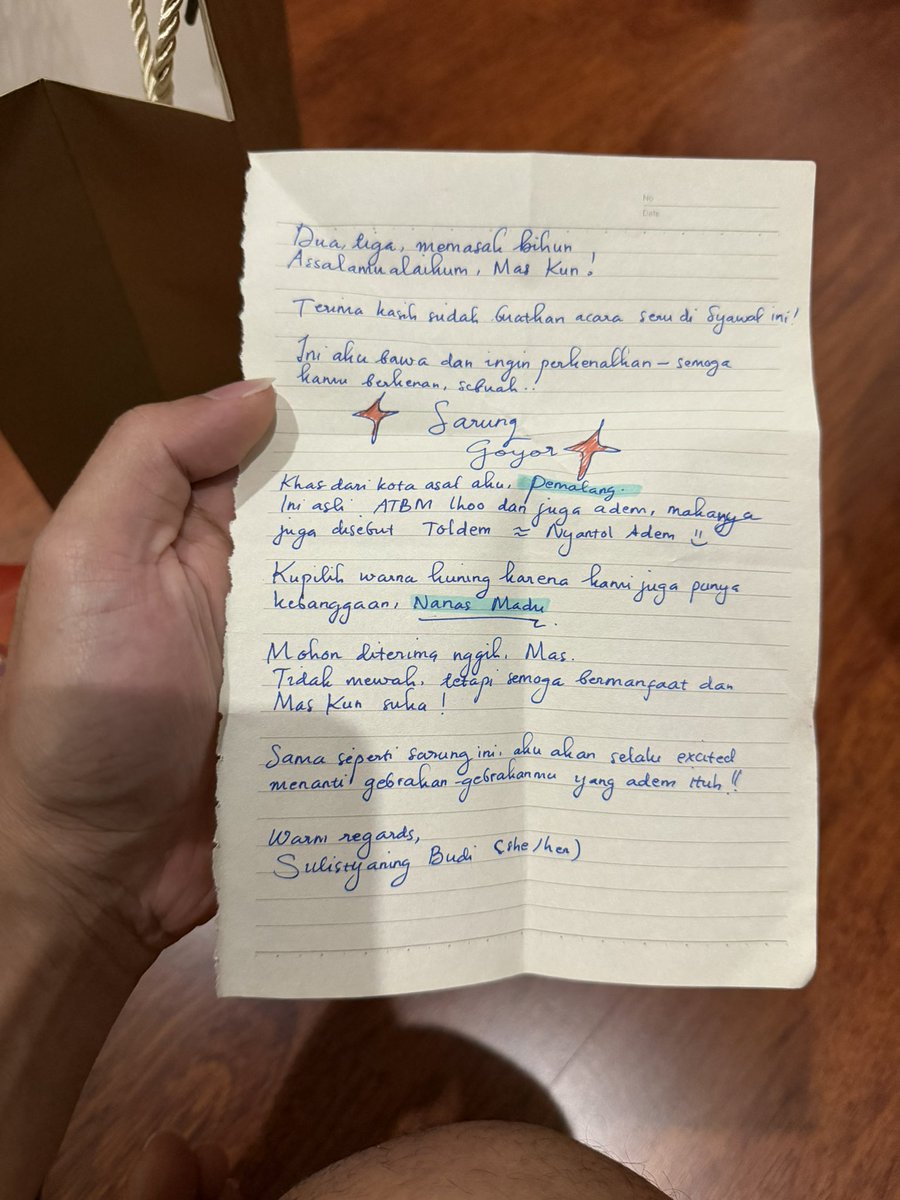 No
Date
Dua, tiga, memasak bihun
Assalamualaikum, Mas Kun!
Terima kasih sudah buatkan acara seru di Syawal ini!
Ini aku bawa dan ingin perkenalkan – semoga
kamu berkenan, sebuah..:
Sarung
Goyor
Khas dari kota asal aku, Pemalang.
Ini asli ATBM lhoo dan juga adem, makanya
juga disebut Toldem ≈ Nyantol Adem
Kupilih warna kuning karena kami juga punya
kebanggaan, Nanas Madu
Mohon diterima nggih, Mas.
Tidak mewah, tetapi semoga bermanfaat dan
Mas Kun suka!
Sama seperti sarung ini, aku akan selalu excited
menanti gebrakan-gebrakanmu yang adem ituh!!
Warm regards,
Sulistyaning Budi (she/her)